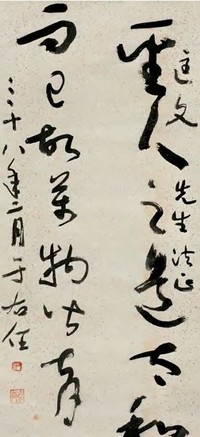 文先生法正
聖人之道太和
而已故萬物皆育
三十八年二月于右任